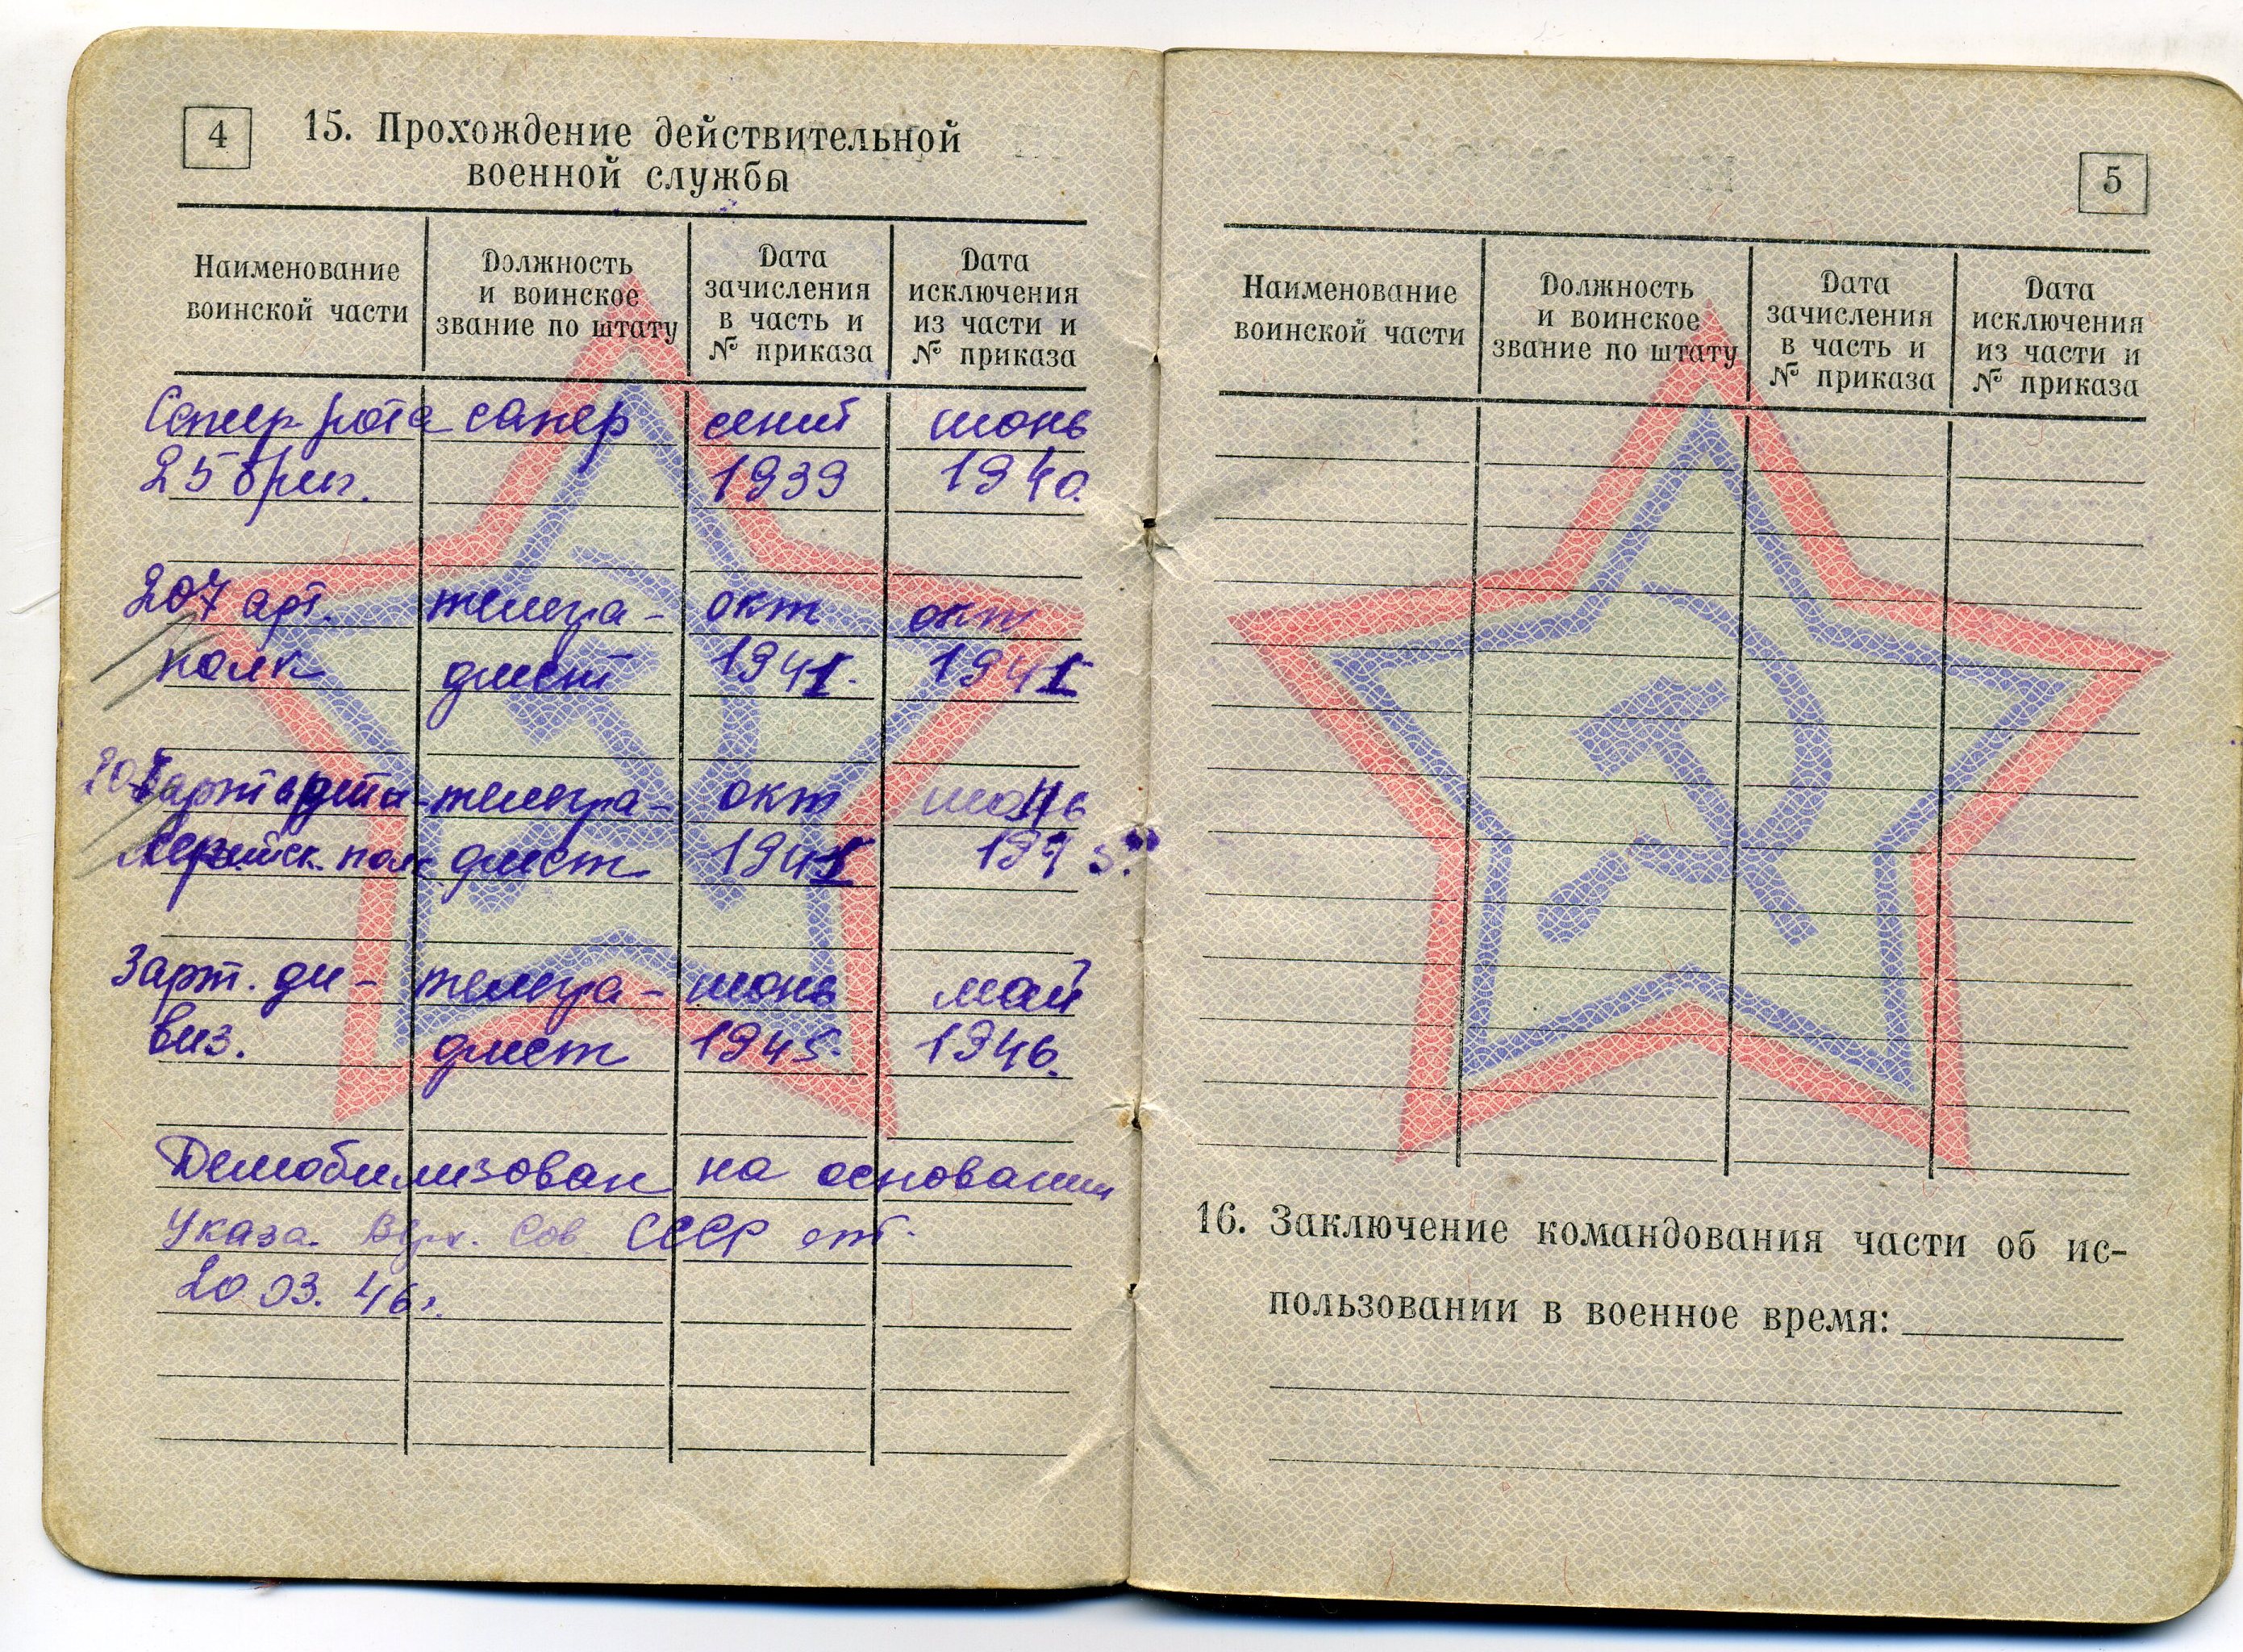 4
15. Прохождение действительной
военной службы
Наименование
воинской части
Должность
и воинское
звание по штату
Дата
зачисления
в часть и
№ приказа
Дата
исключения
из части и
№ приказа
рота сапер 1939 июнь
25 бриг. 1940
207 арт. телегра- окт окт
полк фист 1941. 1941
телегра- окт июнь
полк фист 1941
3 арт. ди- телегра- июнь май
виз. фист 1945. 1946.
Демобилизован на основании
Указа Верх. Сов СССР от
20 03. 46г.
5
Наименование
воинской части
Должность
и воинское
звание по штату
Дата
зачисления
в часть и
№ приказа
Дата
исключения
из части и
№ приказа
16. Заключение командования части об ис-
пользовании в военное время: